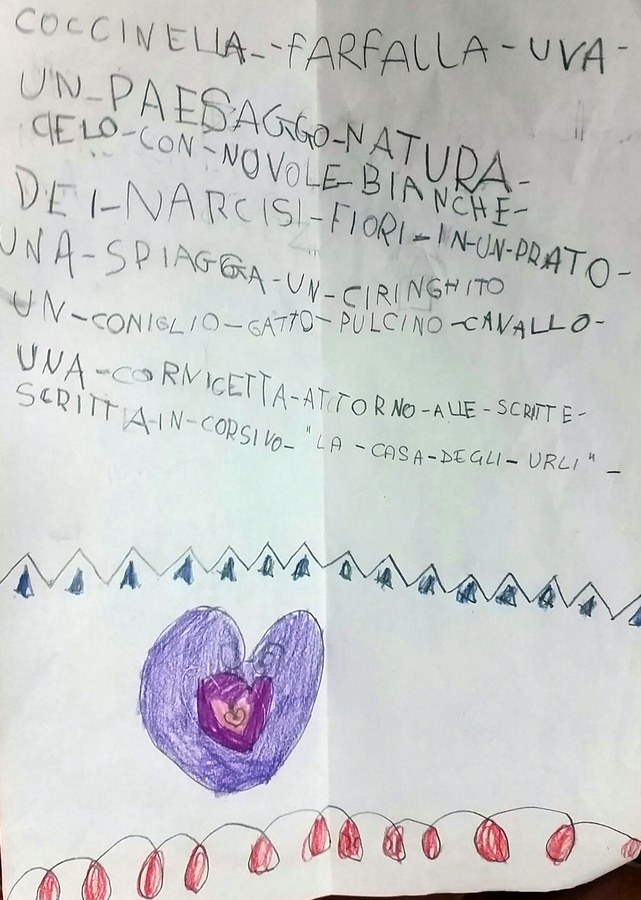 COCCINELLA--FARFALLA-UVA-
UN-PAESAGGO-NATURA-
CIELO-CON-NOVOLE BIANCHE-
DEI-NARCISI-FIORI-IN-UN-PRATO-
UNA-SPIAGGA-UN-CIRINGHITO
UN-CONIGLIO-GATTO-PULCINO-CAVALLO-
UNA-CORNICETTA-ATTORNO-ALLE-SCRITTE-
SCRITTA-IN-CORSIVO-"LA-CASA-DEGLI-URLI"-